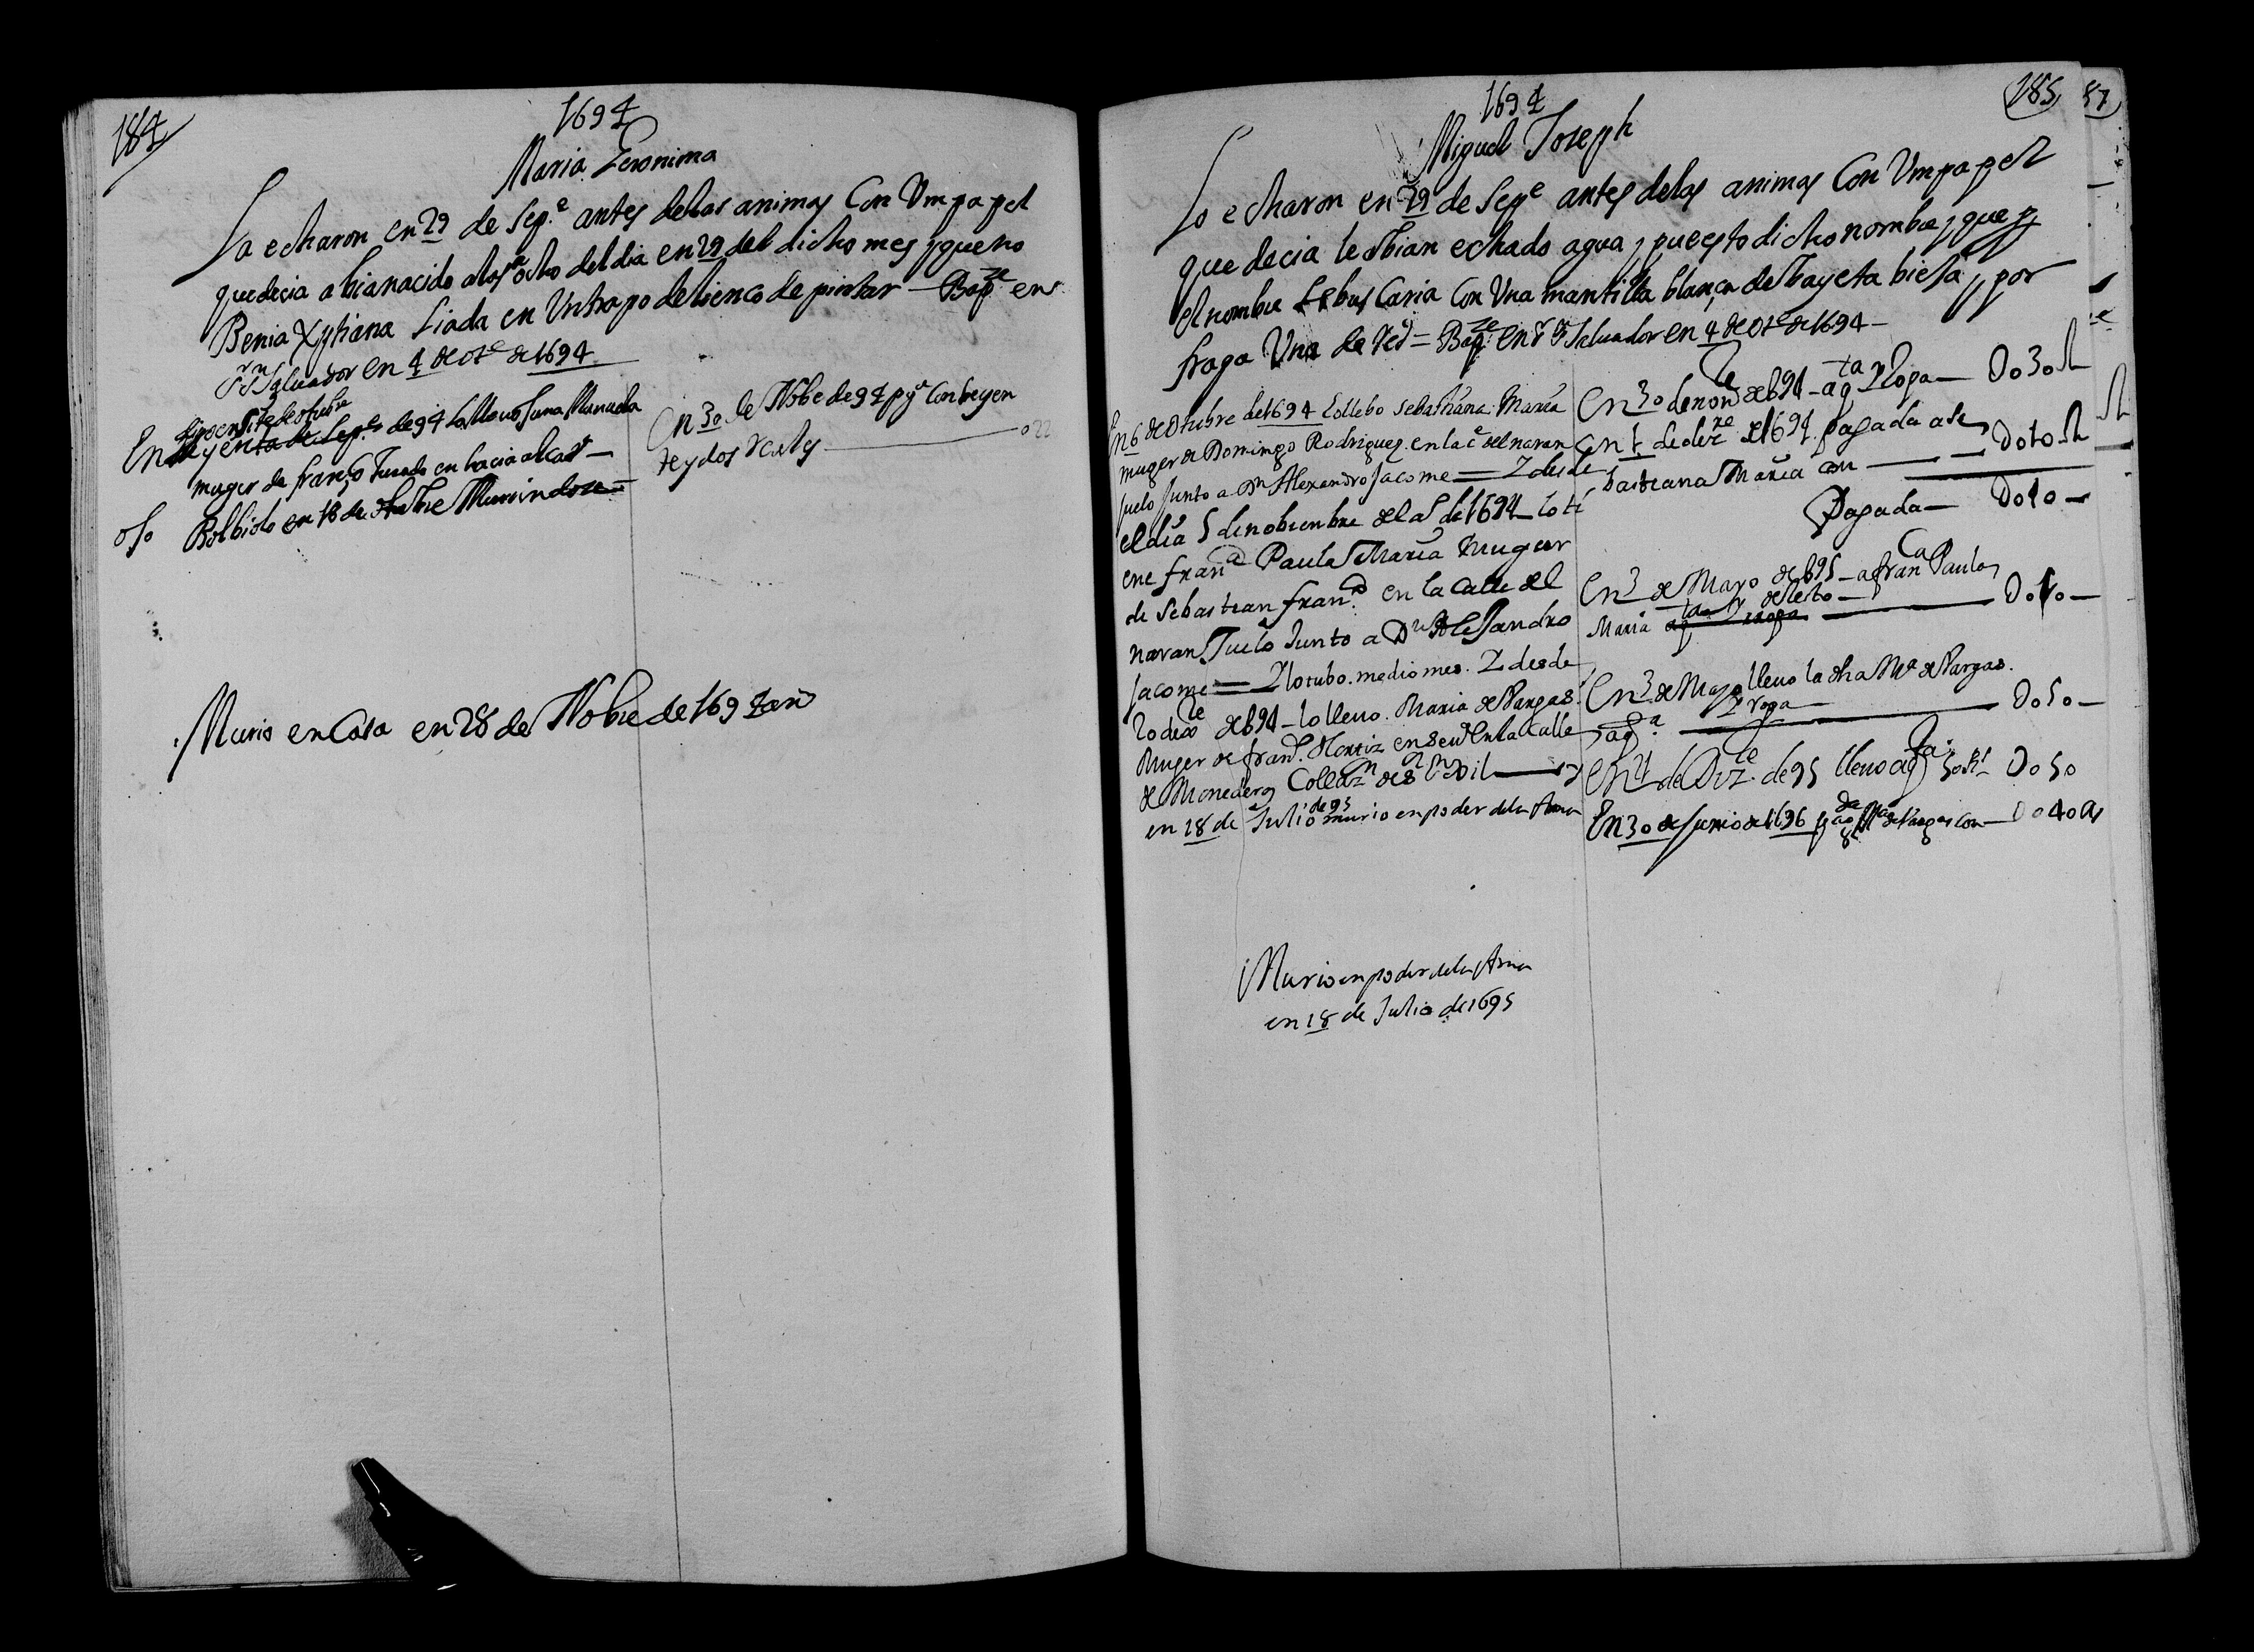 184
1694
Maria Geronima
La echaron en 29 de Sep.e antes de las animas Con Um papel
que decia abia nacido a las ocho del dia en 29 del dicho mes y que no
Benia Xptiana Liada en Un trapo de lienço de pintar — Bapze en
Sn Salvador en 4 de ote de 1694
digo en siete de otubre
En de Sepe de 94 La lleuo Juana Manuela
muger de franco Jurado en
oJo Bolbiola en 18 de otubre
En 30 de Nobe de 94 pge Con beyen
te y dos Reales — 022
Murio en Casa en 28 de Nobre de 1694 an
185
1694
Miguel Joseph
Lo echaron en 29 de Sepe antes de las animas Con Um papel
que decia le abian echado agua y puesto dicho nombre y que pr
el nombre Le buscaria Con Una mantilla blanca de bayeta bieJa y por
fraga Una de Red = Bapze en Sn Saluador en 4 de Ote de 1694 —
En 6 de Otubre de 1694 Lo llebo Sebastiana Maria
muger de Domingo Rodriguez en la ce del naran
juelo Junto a Dn Alexandro Jacome = Y desde
el dia 5 de nobienbre del aº de 1694 lo ti
ene franca Paula Maria Muger
de Sebastian franco en la Calle del
naranJuelo Junto a Dn AleJandro
Jacome = Y lo tubo medio mes. Y desde
20 de de 694 — lo lleuo Maria de Vargas
Muger de franco Hortiz en la Calle
de Monederos Collazon de Sn Gil —
en 18 de Julio de 95 murio en poder de la Ama
En 30 de nove de 694 — agta Y Ropa — Do30R
en 1 de dize de 1694 pagada a Se
bastiana Maria con — Do10R
Pagada — Do10 —
En 3 de Mayo de 695 — a franca Paula
Maria agta Y ropa de resto — Do10 —
En 3 de Mayo lleuo la dha Ma de Vargas
agta Y ropa — Do50 —
En 21 de Dize de 95 lleuo agta 50 Rs Do50
En 30 de Junio de 1696 pgda a Ma de Vargas con — Do40
Murio en poder de la Ama
en 18 de Julio de 1695